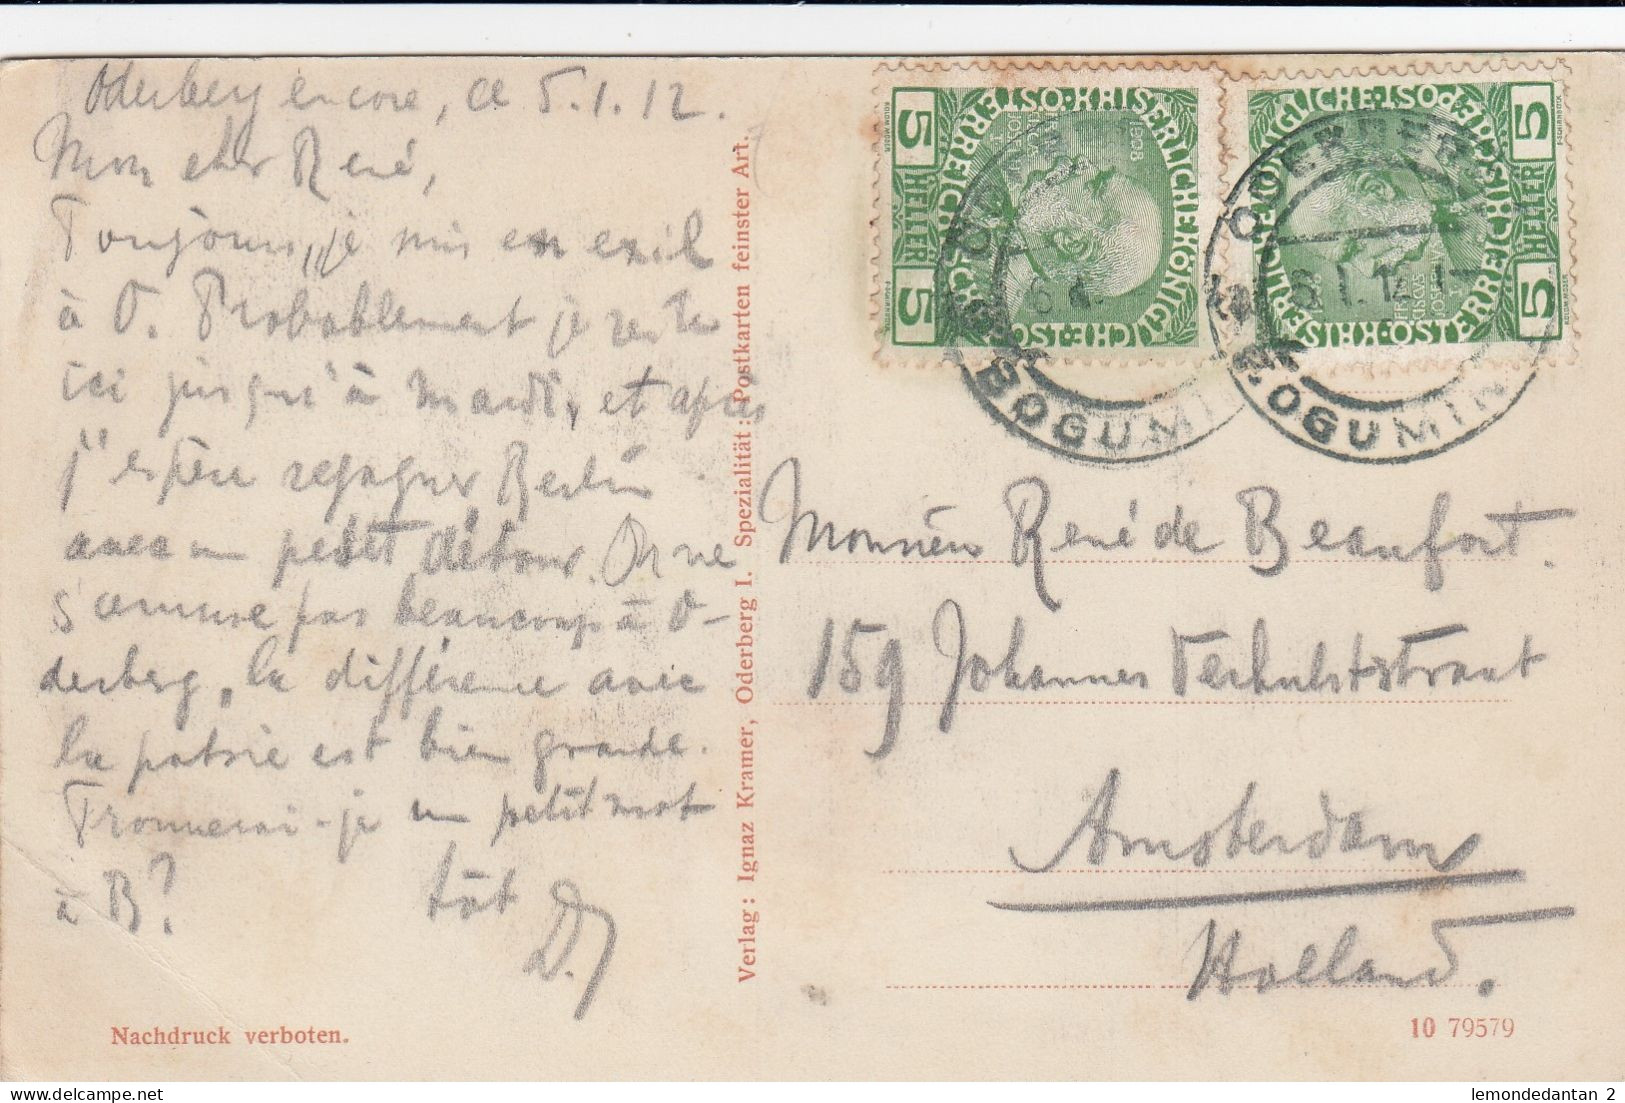 Oderberg encore, ce 5.1.12.
Mon cher René,
Toujours je suis en exil
à O. Probablement je reste
ici jusqu'à mardi, et après
j'espère regagner Berlin
avec un petit détour. On ne
s'amuse pas beaucoup à O-
derberg, la différence avec
la patrie est bien grande.
Trouverai-je un petit mot
à B? tàt
D.
Nachdruck verboten.
Verlag: Ignaz Kramer, Oderberg I. Spezialität: Postkarten feinster Art.
5 HELLER 5
KAISERLICHE KÖNIGLICHE ÖSTERREICHISCHE POST
1908
5 HELLER 5
KAISERLICHE KÖNIGLICHE ÖSTERREICHISCHE POST
ODERBERG
6.I.12
BOGUMIN
Monsieur René de Beaufort.
159 Johannes Verhulststraat
Amsterdam
Holland.
10 79579
lemondedantan 2